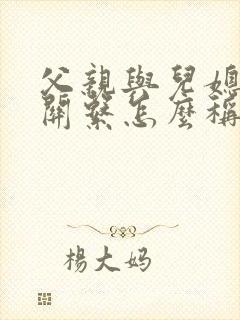 父親與兒媳
關繫怎麼稱
楊大妈